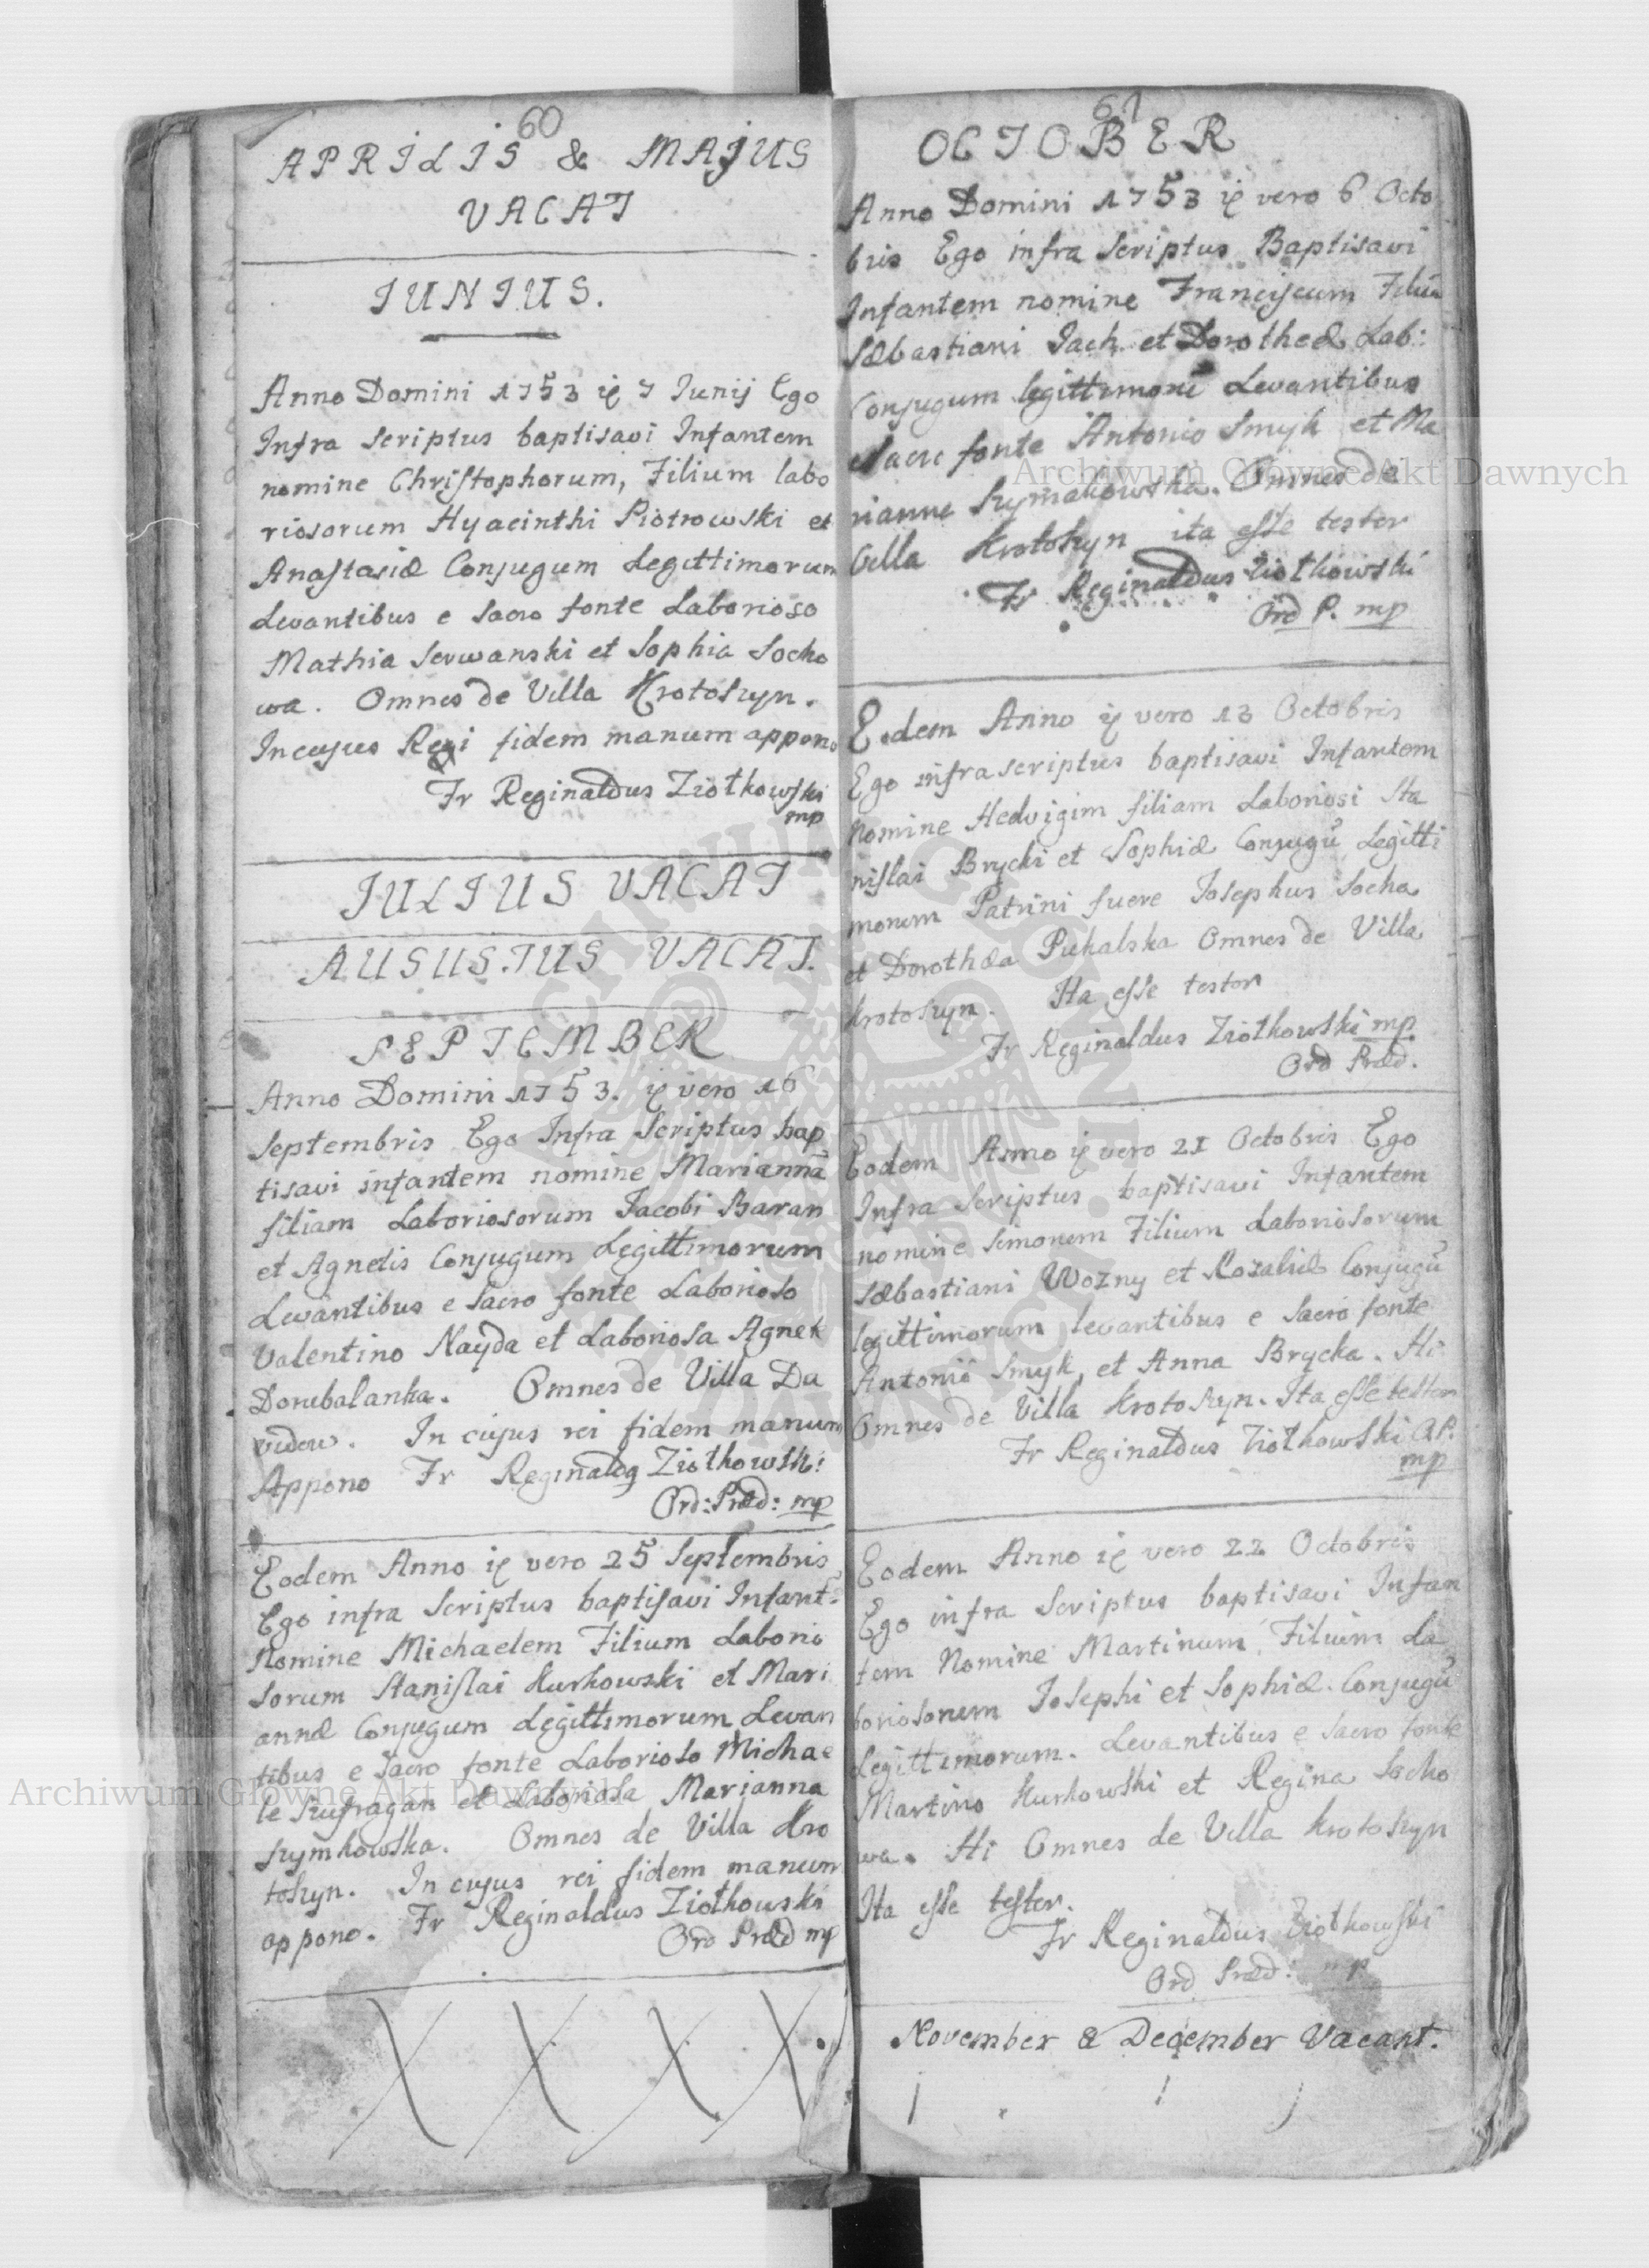 60
APRILIS & MAJUS
VACAT
IUNIUS.
Anno Domini 1753 7 Iunij Ego
Infra scriptus baptisavi Infantem
nomine Christophorum, Filium labo
riosorum Hyacinthi Piotrowski et
Anastasiæ Conjugum Legittimorum
Levantibus e Sacro fonte Laborioso
Mathia Serwanski et Sophia Socho
wa. Omnes de Villa Krotoszyn.
In cujus Rei fidem manum appono
Fr Reginaldus Ziołkowski
mp
IULIUS VACAT
AUSUSTUS VACAT.
SEPTEMBER
Anno Domini 1753. vero 16
Septembris Ego Infra Scriptus bap
tisavi infantem nomine Mariannā
filiam Laboriosorum Jacobi Baran
et Agnetis Conjugum Legittimorum
Levantibus e Sacro fonte Laborioso
Valentino Nayda et Laboriosa Agnet
Dorubalanka. Omnes de Villa Du
In cujus rei fidem manum
Appono Fr Reginaldq Ziołkowski
Ord: Præd: mp
Eodem Anno vero 25 Septembris
Ego infra Scriptus baptisavi Infant
Nomine Michaelem Filium Laborio
sorum Stanislai Kurkowski et Mari
annæ Conjugum Legittimorum Levan
tibus e Sacro fonte Laborioso Michae
le Szufragan et Laboriosa Marianna
Szymkowska. Omnes de Villa Kro
toszyn. In cujus rei fidem manum
appono. Fr Reginaldus Ziołkowski
Ord Præd mp
61
OCTOBER
Anno Domini 1753 vero 6 Octo
bris Ego infra scriptus Baptisavi
Infantem nomine Franciscum Filiū
Sæbastiani Jach et Dorotheæ Lab:
Conjugum Levantibus
Sacro fonte Antonio Smyk et Ma
rianne Szymakowska. Omnes de
Villa Krotoszyn ita esse testor
Fr Reginaldus Ziołkowski
Ord P. mp
Eodem Anno vero 13 Octobris
Ego infrascriptus baptisavi Infantem
Nomine Hedvigim filiam Laboriosi Sta
nislai Brycki et Sophiæ Conjugū Legitti
morum Patrini fuere Josephus Socha
et Dorothæa Pukalska Omnes de Villa
Krotoszyn. Ita esse testor
Fr Reginaldus Ziołkowski mp.
Ord Præd.
Eodem Anno vero 21 Octobris Ego
Infra Scriptus baptisavi Infantem
nomine Simonem Filium Laboriosorum
Sæbastiani Wozny et Rozaliæ Conjugū
legittimorum levantibus e Sacro fonte
Antonio Smyk, et Anna Brycka. Hi
Omnes de Villa Krotoszyn. Ita esse testor
Fr Reginaldus Ziołkowski O.P.
mp
Eodem Anno vero 22 Octobris
Ego infra Scriptus baptisavi Infan
tem Nomine Martinum, Filium La
boriosorum Josephi et Sophiæ. Conjugū
Legittimorum. Levantibus e Sacro fonte
Martino Kurkowski et Regina Socho
wa. Hi Omnes de Villa Krotoszyn
Ita esse testor.
Fr Reginaldus Ziołkowski
Ord Præd: mp
November & December Vacant.
Archiwum Główne Akt Dawnych
Archiwum Główne Akt Dawnych
ARCHIWUM GŁÓWNE AKT DAWNYCH